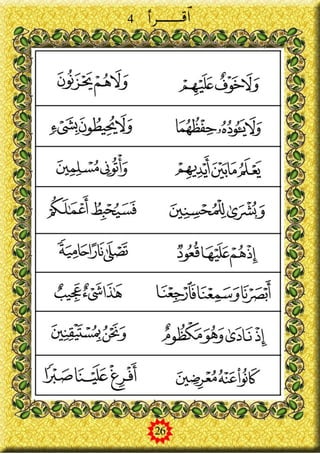 أقـــرأ 4
وَلَا خَوْفٌ عَلَيْهِمْ وَلَا هُمْ يَحْزَنُونَ
وَلَا يَـُٔودُهُۥ حِفْظُهُمَا وَلَا يُحِيطُونَ بِشَىْءٍ
يَعْلَمُ مَا بَيْنَ أَيْدِيهِمْ وَأْتُونِى مُسْلِمِينَ
وَبُشْرَىٰ لِلْمُحْسِنِينَ فَسَيُحْبِطُ أَعْمَـٰلَهُمْ
إِذْ هُمْ عَلَيْهَا قُعُودٌ تَصْلَىٰ نَارًا حَامِيَةً
أَبْصَرْنَا وَسَمِعْنَا فَارْجِعْنَا هَـٰذَا شَىْءٌ عَجِيبٌ
إِذْ نَادَىٰ وَهُوَ مَكْظُومٌ وَنَحْنُ بِمُسْتَيْقِنِينَ
كَانُوا۟ عَنْهَا مُعْرِضِينَ أَفْرِغْ عَلَيْنَا صَبْرًا
26